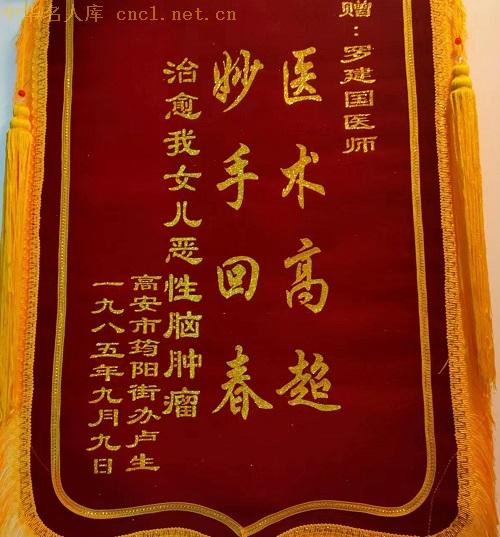 中华名人库 cncl.net.cn
赠：罗建国医师
医术高超
妙手回春
治愈我女儿恶性脑肿瘤
高安市筠阳街办卢生
一九八五年九月九日